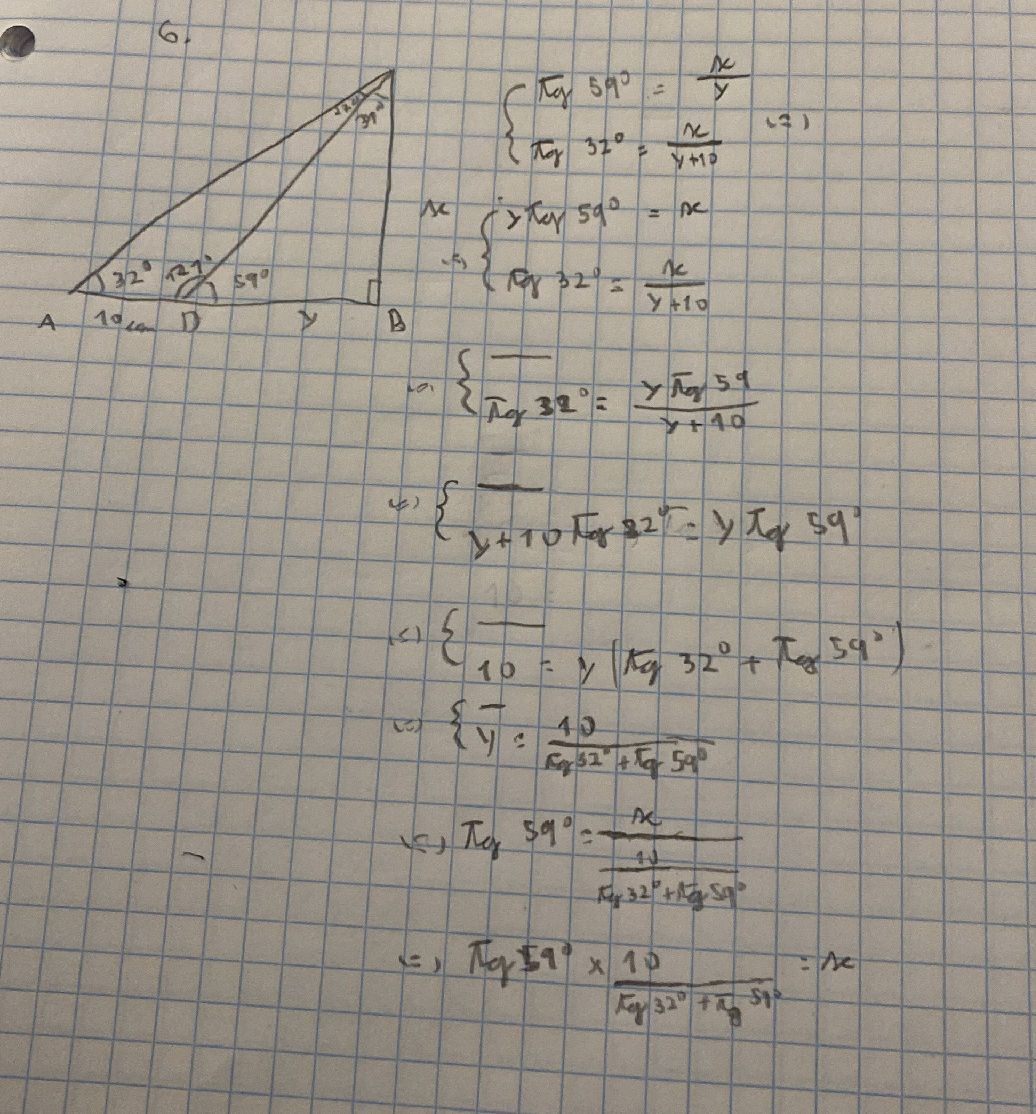 6.
31°
32° 121° 59°
A 10cm D y B
x
{ tg 59° = x/y
{ tg 32° = x/(y+10) (=)
(=) { y tg 59° = x
{ tg 32° = x/(y+10)
(=) { —
{ tg 32° = y tg 59/(y+10)
(=) { —
{ y+10 tg 32° = y tg 59°
(=) { —
{ 10 = y (tg 32° + tg 59°)
(=) { —
{ y = 10/(tg 32° + tg 59°)
(=) tg 59° = x/(10/(tg 32° + tg 59°))
(=) tg 59° × 10/(tg 32° + tg 59°) = x